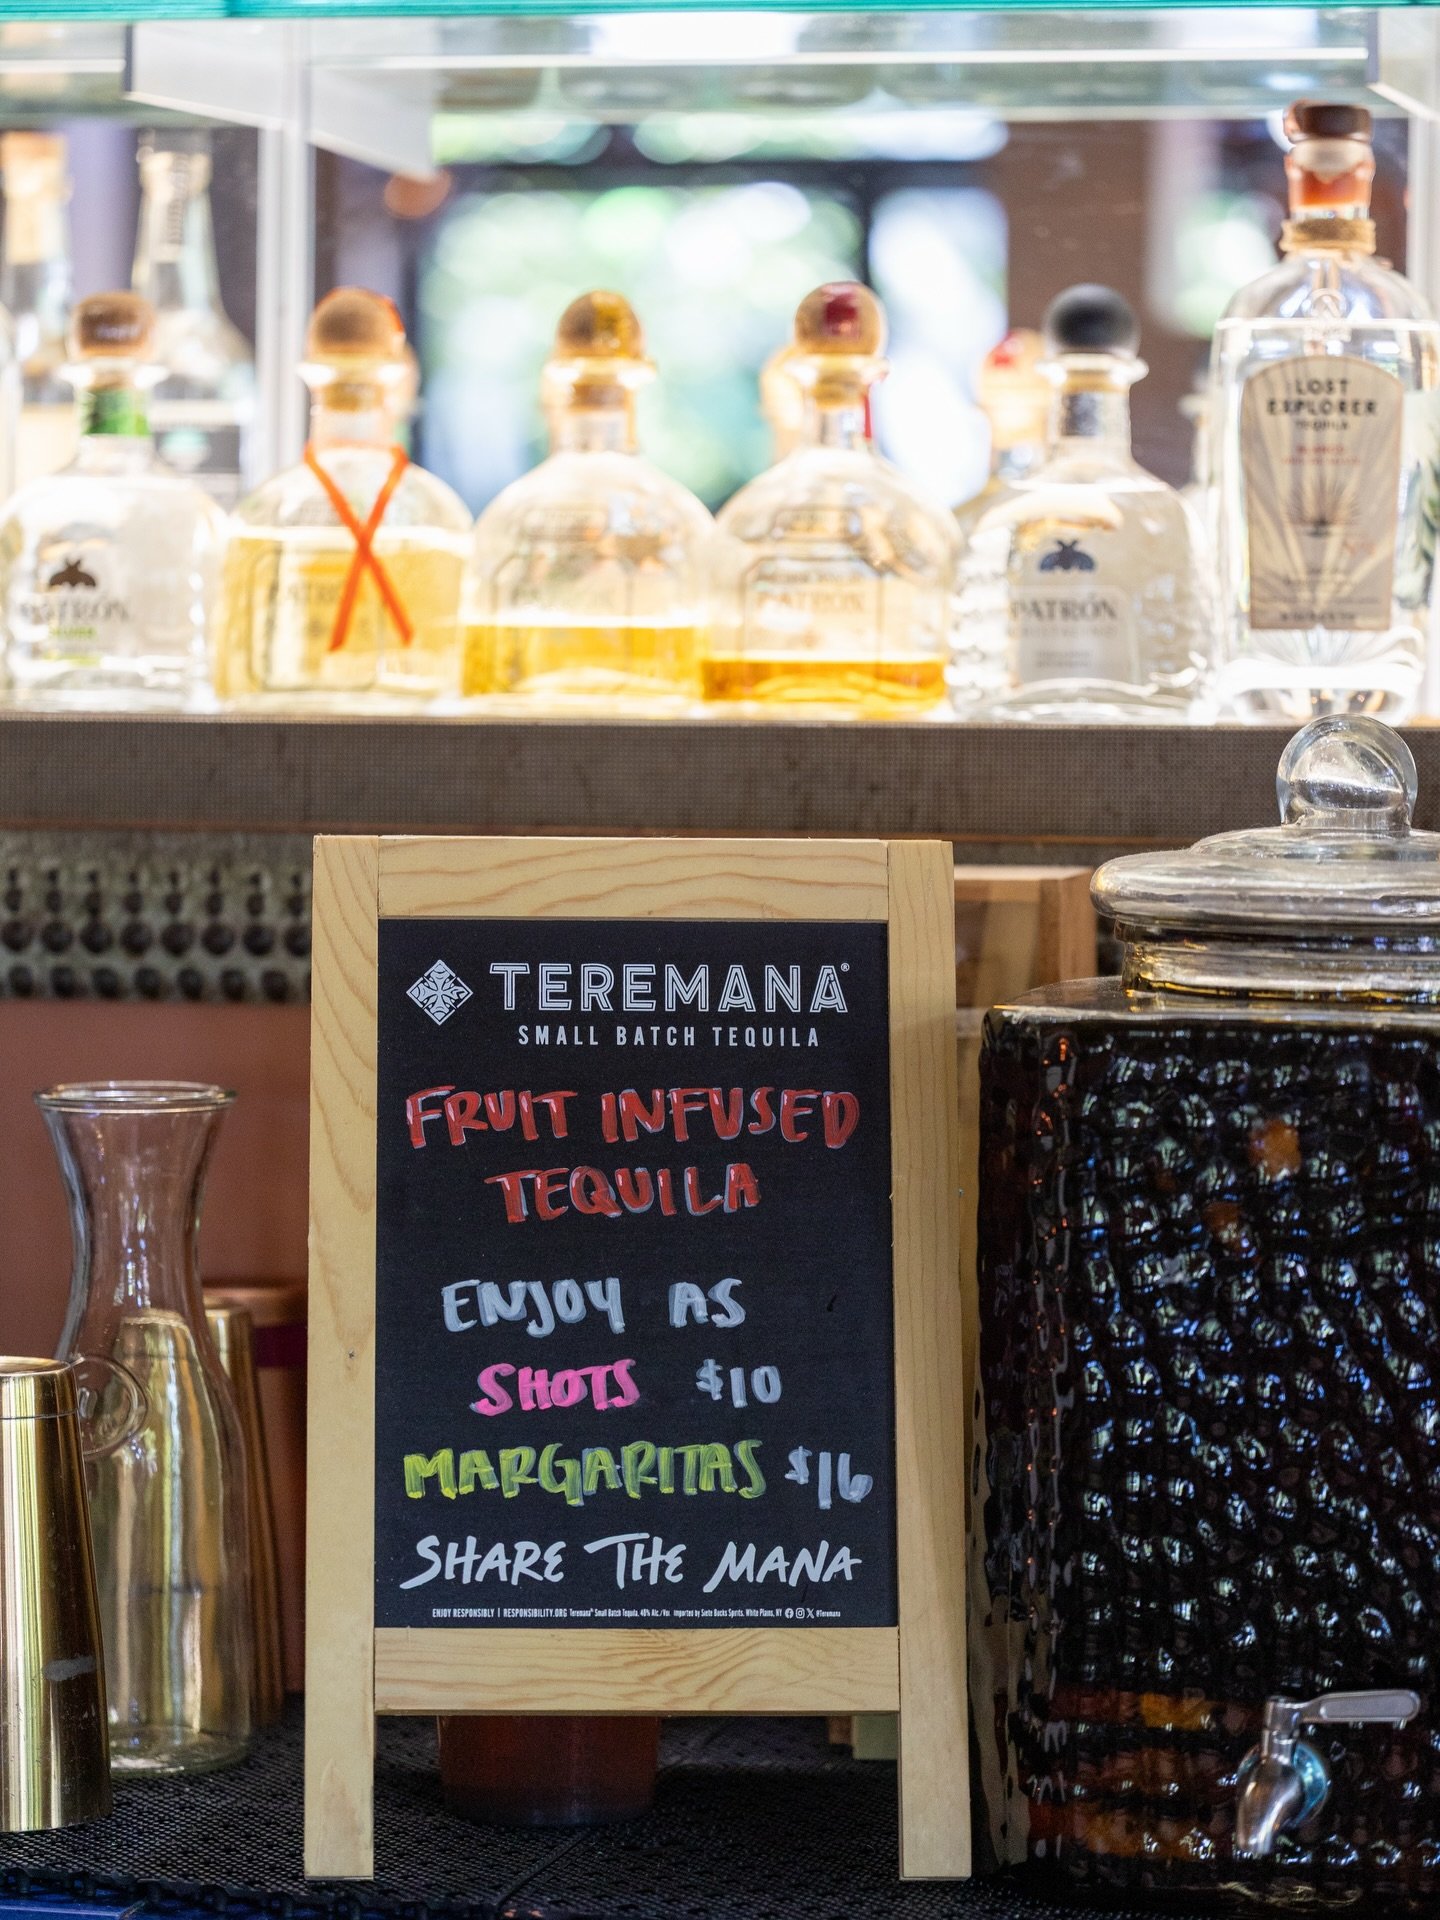 LOST
EXPLORER
TEQUILA
PATRÓN
PATRÓN
PATRÓN
TEREMANA®
SMALL BATCH TEQUILA
FRUIT INFUSED
TEQUILA
ENJOY AS
SHOTS $10
MARGARITAS $16
SHARE THE MANA
ENJOY RESPONSIBLY | RESPONSIBILITY.ORG Teremana® Small Batch Tequila. 40% Alc./Vol. Imported by Siete Bucks Spirits, White Plains, NY @Teremana